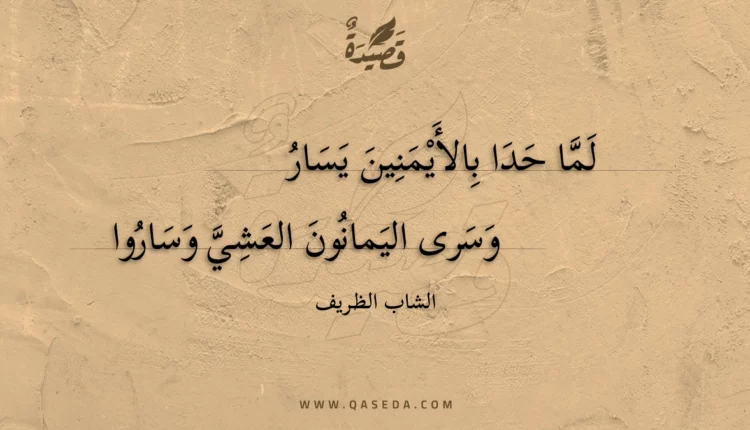 قَصِيدَةٌ
لَمَّا حَدَا بِالأَيْمَنِينَ يَسَارُ
وَسَرى اليَمانُونَ العَشِيَّ وَسَارُوا
الشاب الظريف
WWW.QASEDA.COM